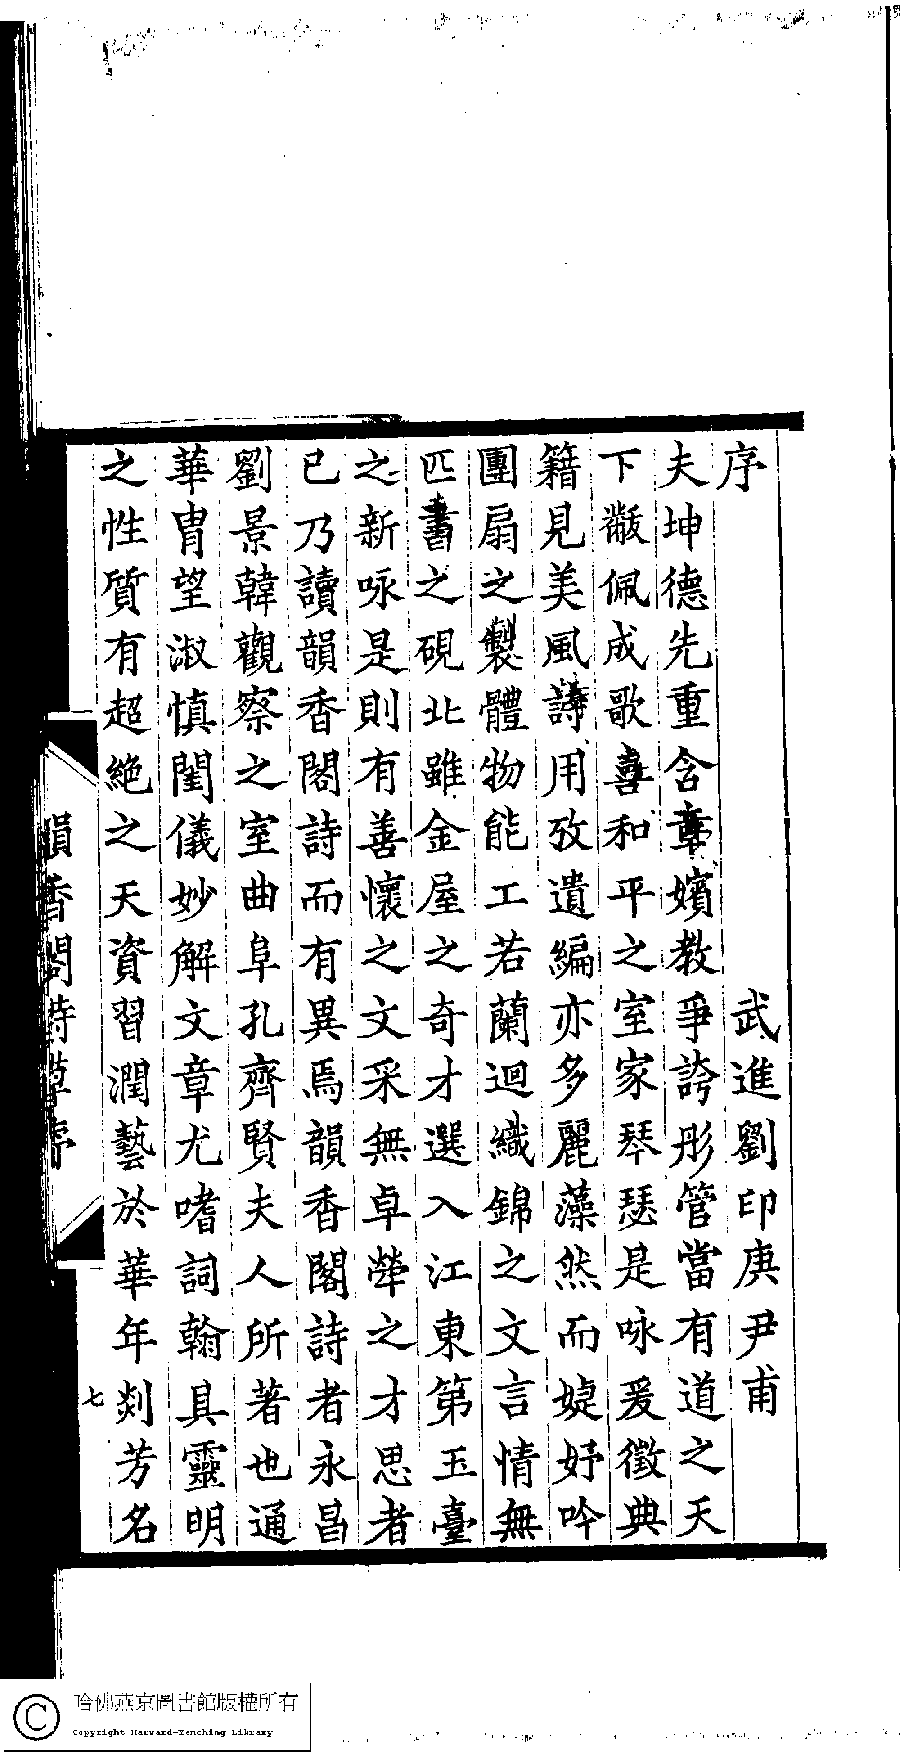 序
武進劉印庚尹甫
夫坤德先重含章嬪教爭誇彤管當有道之天
下黻佩成歌喜和平之室家琴瑟是咏爰徵典
籍見美風詩用攷遺編亦多麗藻然而婕妤吟
團扇之製體物能工若蘭迴織錦之文言情無
匹書之硯北雖金屋之奇才選入江東第玉臺
之新咏是則有善懷之文采無卓犖之才思者
已乃讀韻香閣詩而有異焉韻香閣詩者永昌
劉景韓觀察之室曲阜孔齊賢夫人所著也通
華胄望淑慎閨儀妙解文章尤嗜詞翰具靈明
之性質有超絶之天資習潤藝於華年剡芳名
韻香閣詩草序
七
哈佛燕京圖書館版權所有
Copyright Harvard-Yenching Library